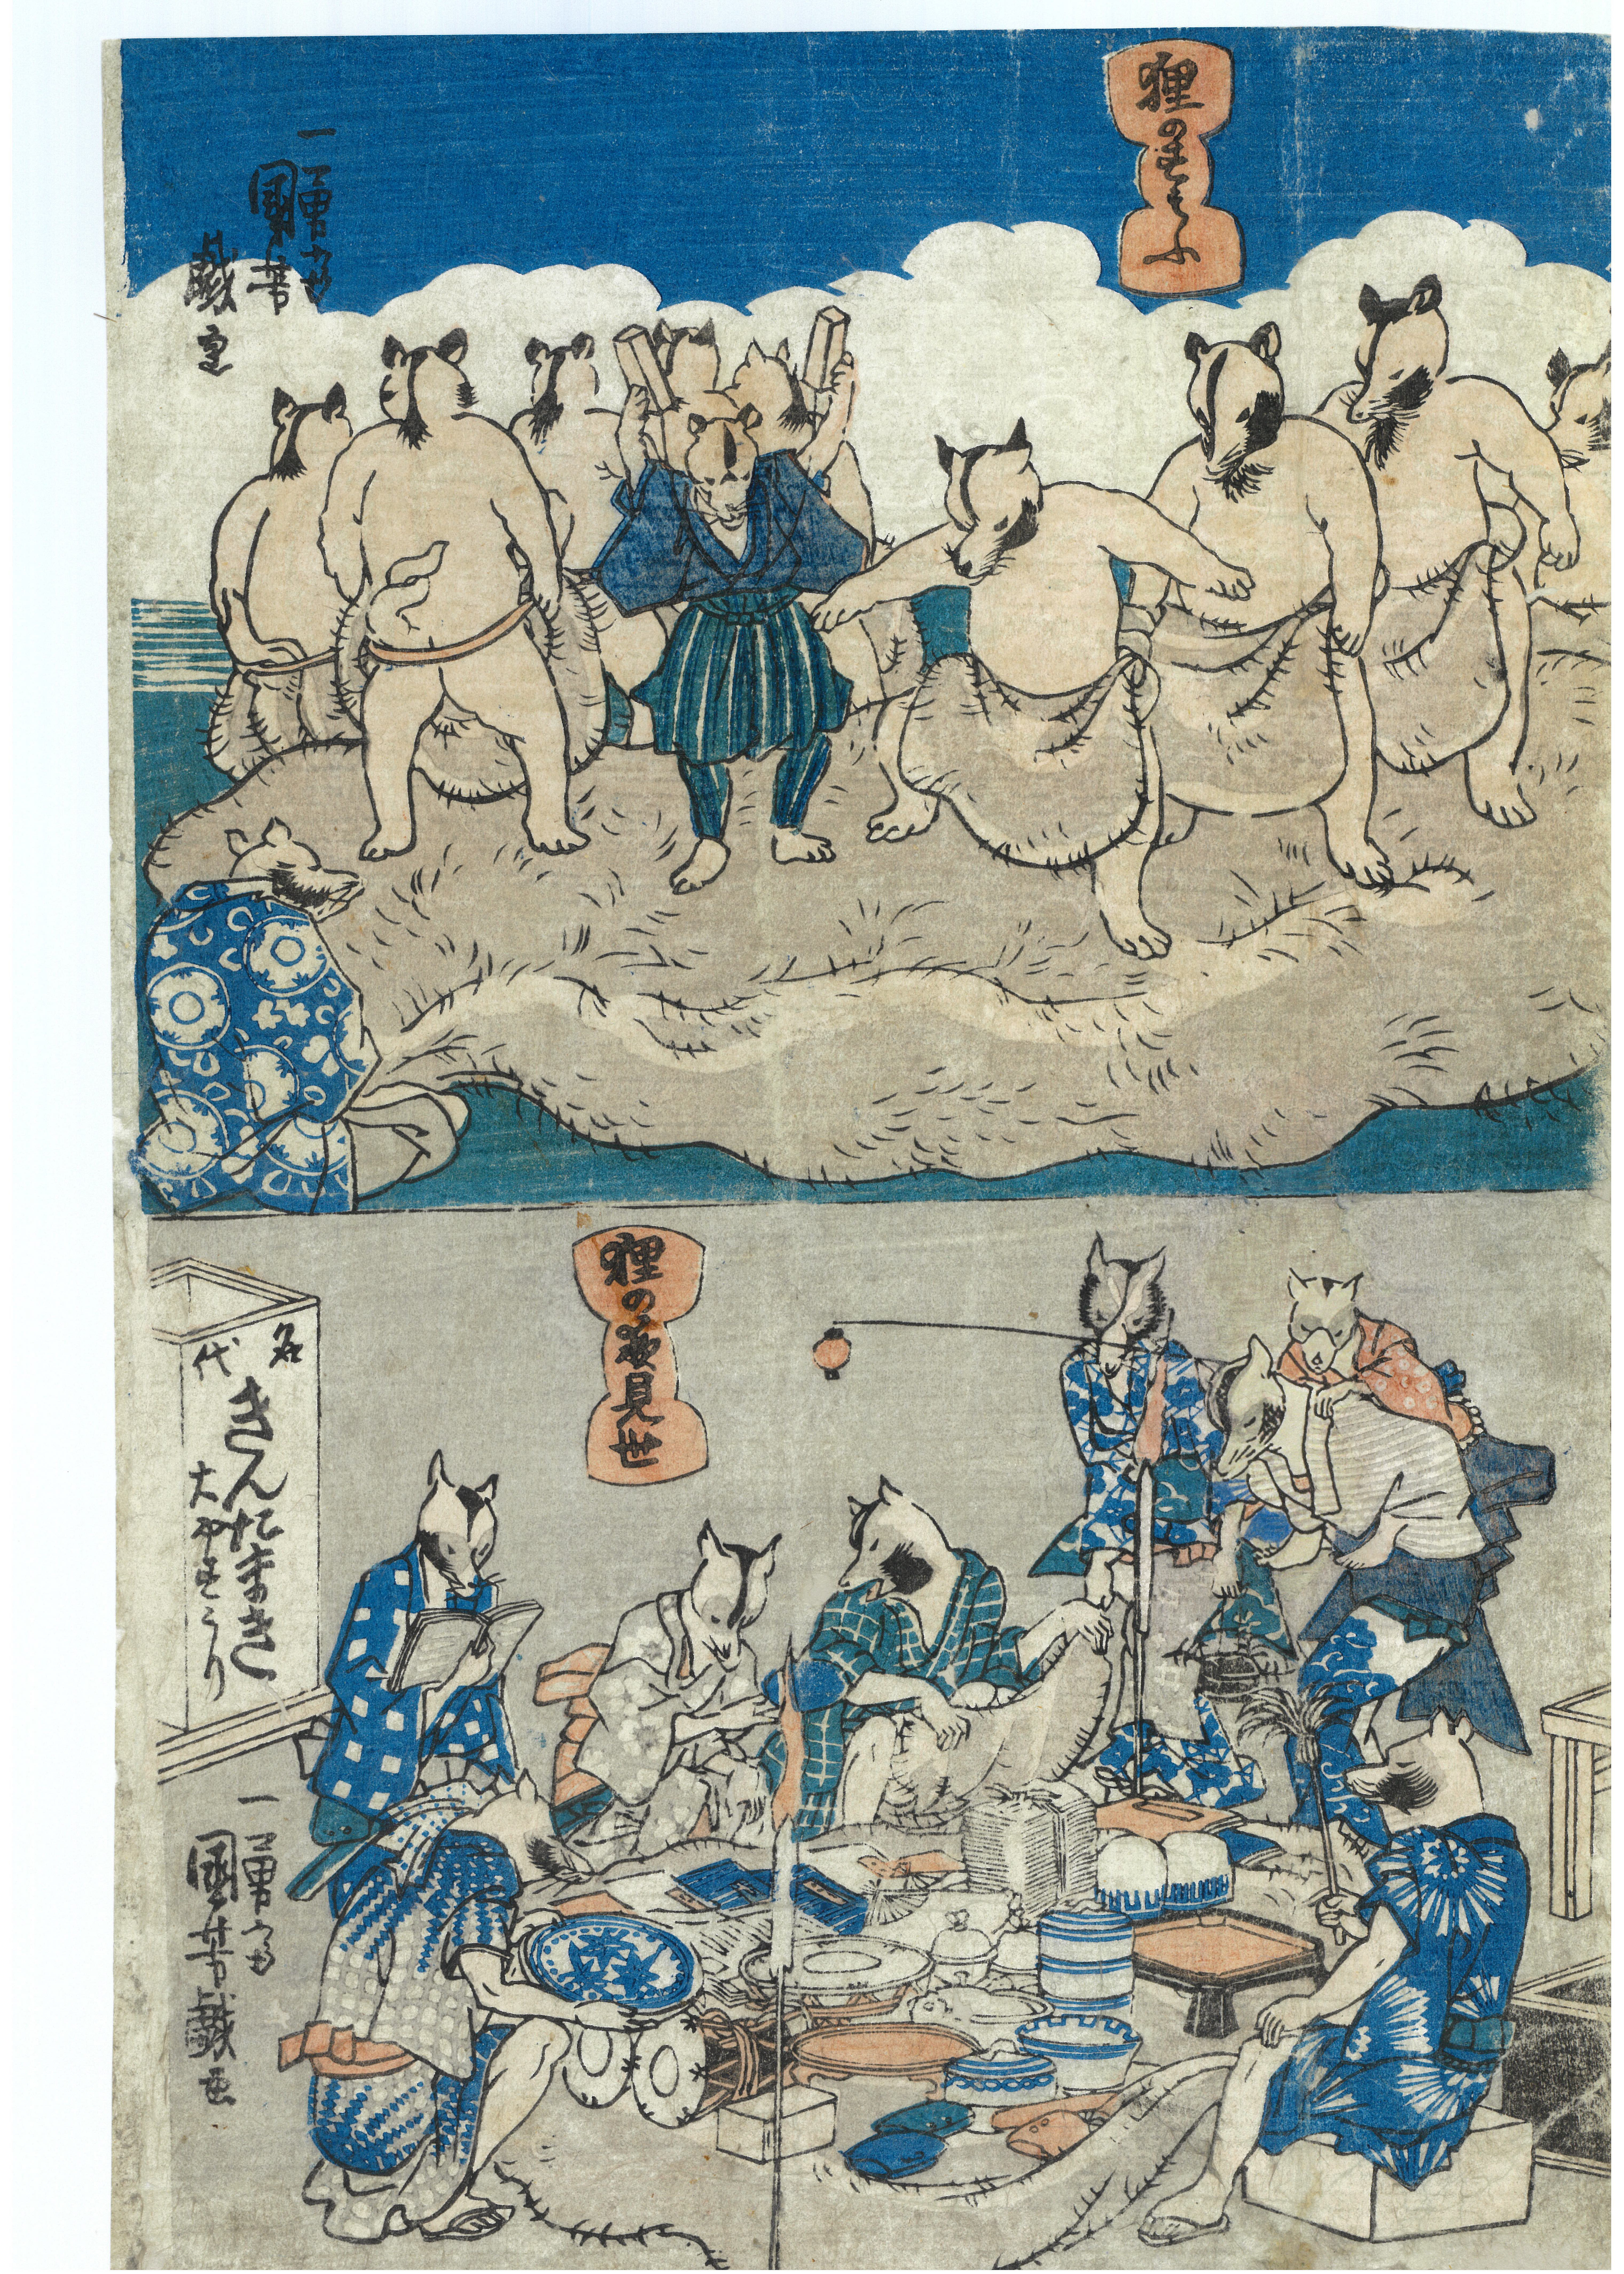 狸の
一勇斎
國芳
戯画
狸の夜見世
名代
きんたまき
大やすうり
一勇斎
國芳戯画